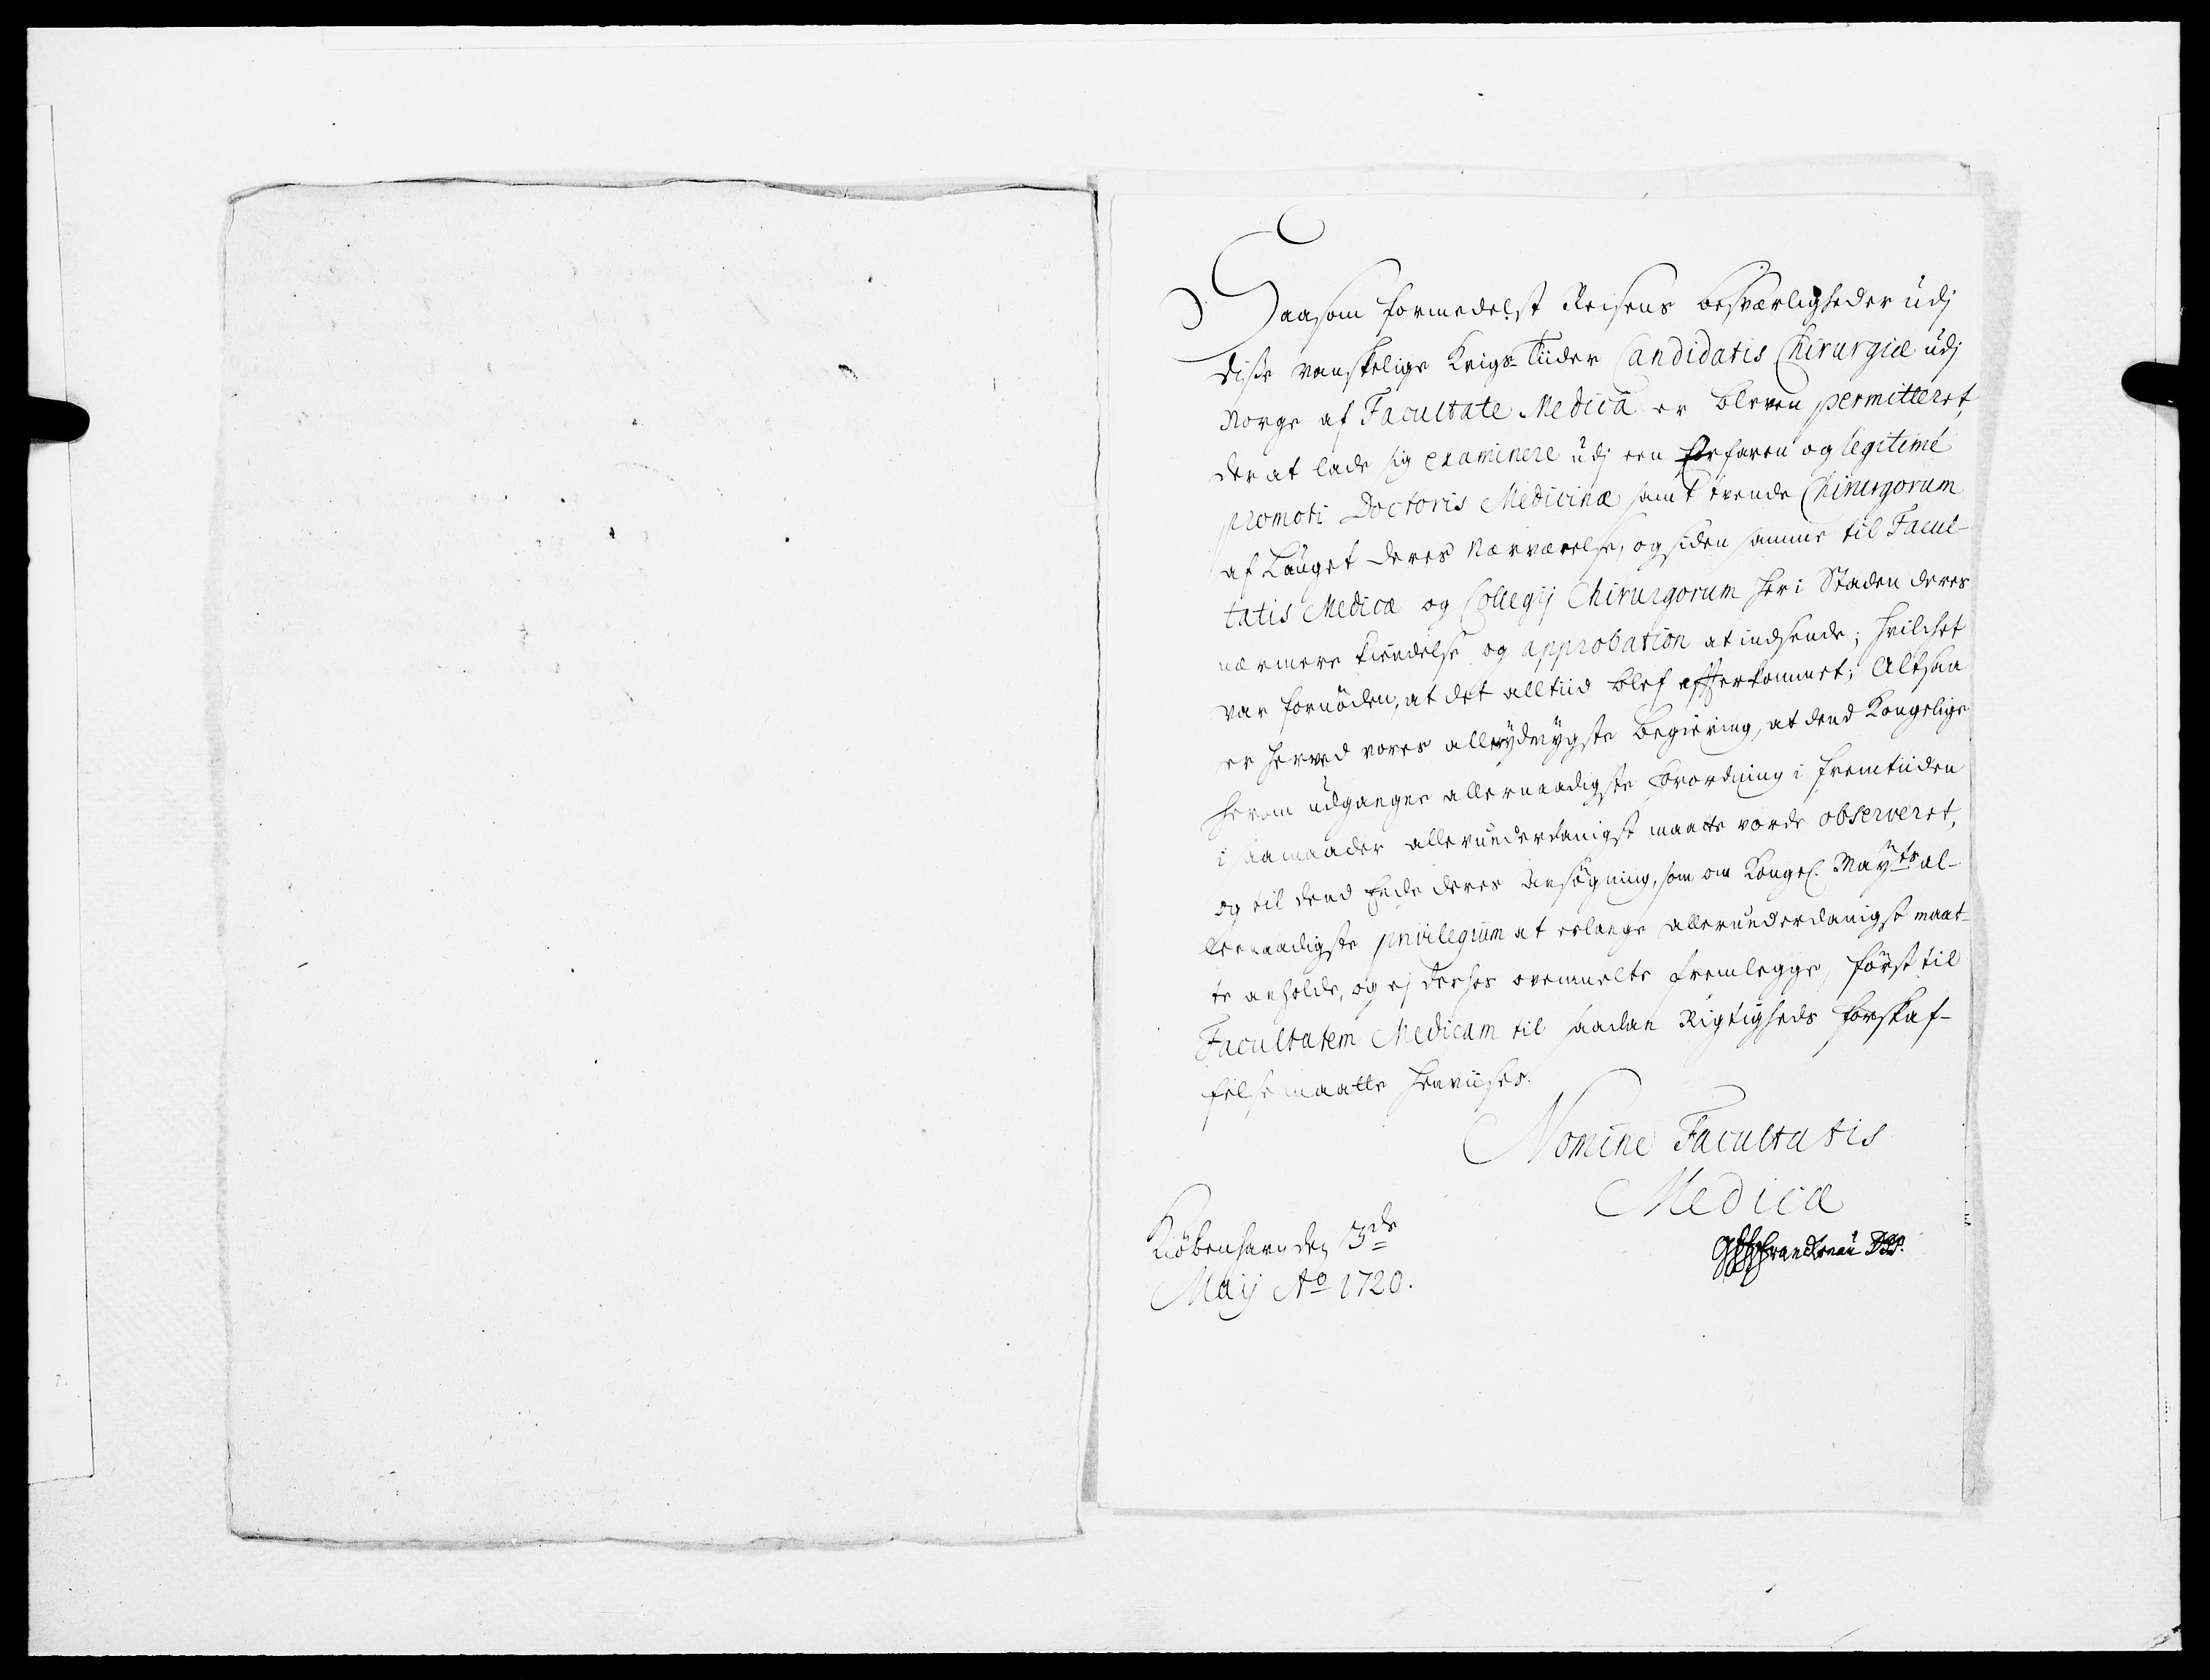 Saasom formedelst Reisens besværligheder udj
disse vanskelige Krigs-Tiider Candidatis Chirurgiæ udj
Norge af Facultate Medicâ er bleven permitteret,
der at lade sig examinere udj een Erfaren og legitimé
promoti Doctoris Medicinæ samt tvende Chirurgorum
af Lauget deres Nærværelse, og siden samme til Facul-
tatis Medicæ og Collegij Chirurgorum her i Staden deres
nærmere Kiendelse og approbation at indsende; hvilchet
var fornöden, at det alltiid blef efterkommet; Altsaa
er herved vores allerydmygste begiering, at dend Kongelige
herom udgangne allernaadigste forordning i fremtiiden
i saamaader allerunderdanigst maatte vorde observeret,
og til dend Ende deres Ansögning, som om Kongel. Mayts al-
lernaadigste privilegium at erlange allerunderdanigst maat-
te anholde, og ej derhos ovenmelte fremlegge, först til
Facultatem Medicam til saadan Rigtigheds forskaf-
felse maatte henviises.
Nomine Facultatis
Medicæ
Kiöbenhavn den 3de
Maij Ao 1720.
Franckenau